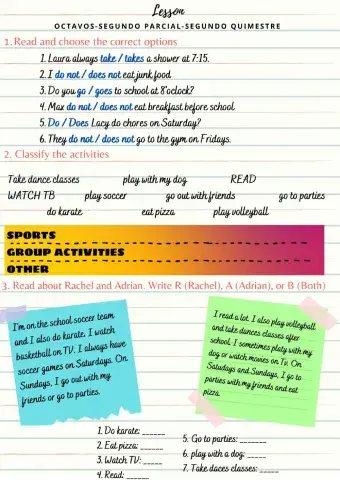 Lesson
OCTAVOS-SEGUNDO PARCIAL-SEGUNDO QUIMESTRE
1. Read and choose the correct options
1. Laura always take / takes a shower at 7:15.
2. I do not / does not eat junk food
3. Do you go / goes to school at 8'oclock?
4. Max do not / does not eat breakfast before school
5. Do / Does Lacy do chores on Saturday?
6. They do not / does not go to the gym on Fridays.
2. Classify the activities
Take dance classes play with my dog READ
WATCH TB play soccer go out with friends go to parties
do karate eat pizza play volleyball
SPORTS
GROUP ACTIVITIES
OTHER
3. Read about Rachel and Adrian. Write R (Rachel), A (Adrian), or B (Both)
I'm on the school soccer team
and I also do karate. I watch
basketball on TV. I always have
soccer games on Saturdays. On
Sundays, I go out with my
friends or go to parties.
I read a lot. I also play volleyball
and take dances classes after
school. I sometimes platy with my
dog or watch movies on Tv. On
Satudays and Sundays, I go to
parties with my friends and eat
pizza.
1. Do karate: ______
2. Eat pizza: ______
3. Watch TV: _____
4. Read: ______
5. Go to parties: _______
6. play with a dog: _____
7. Take daces classes: _____